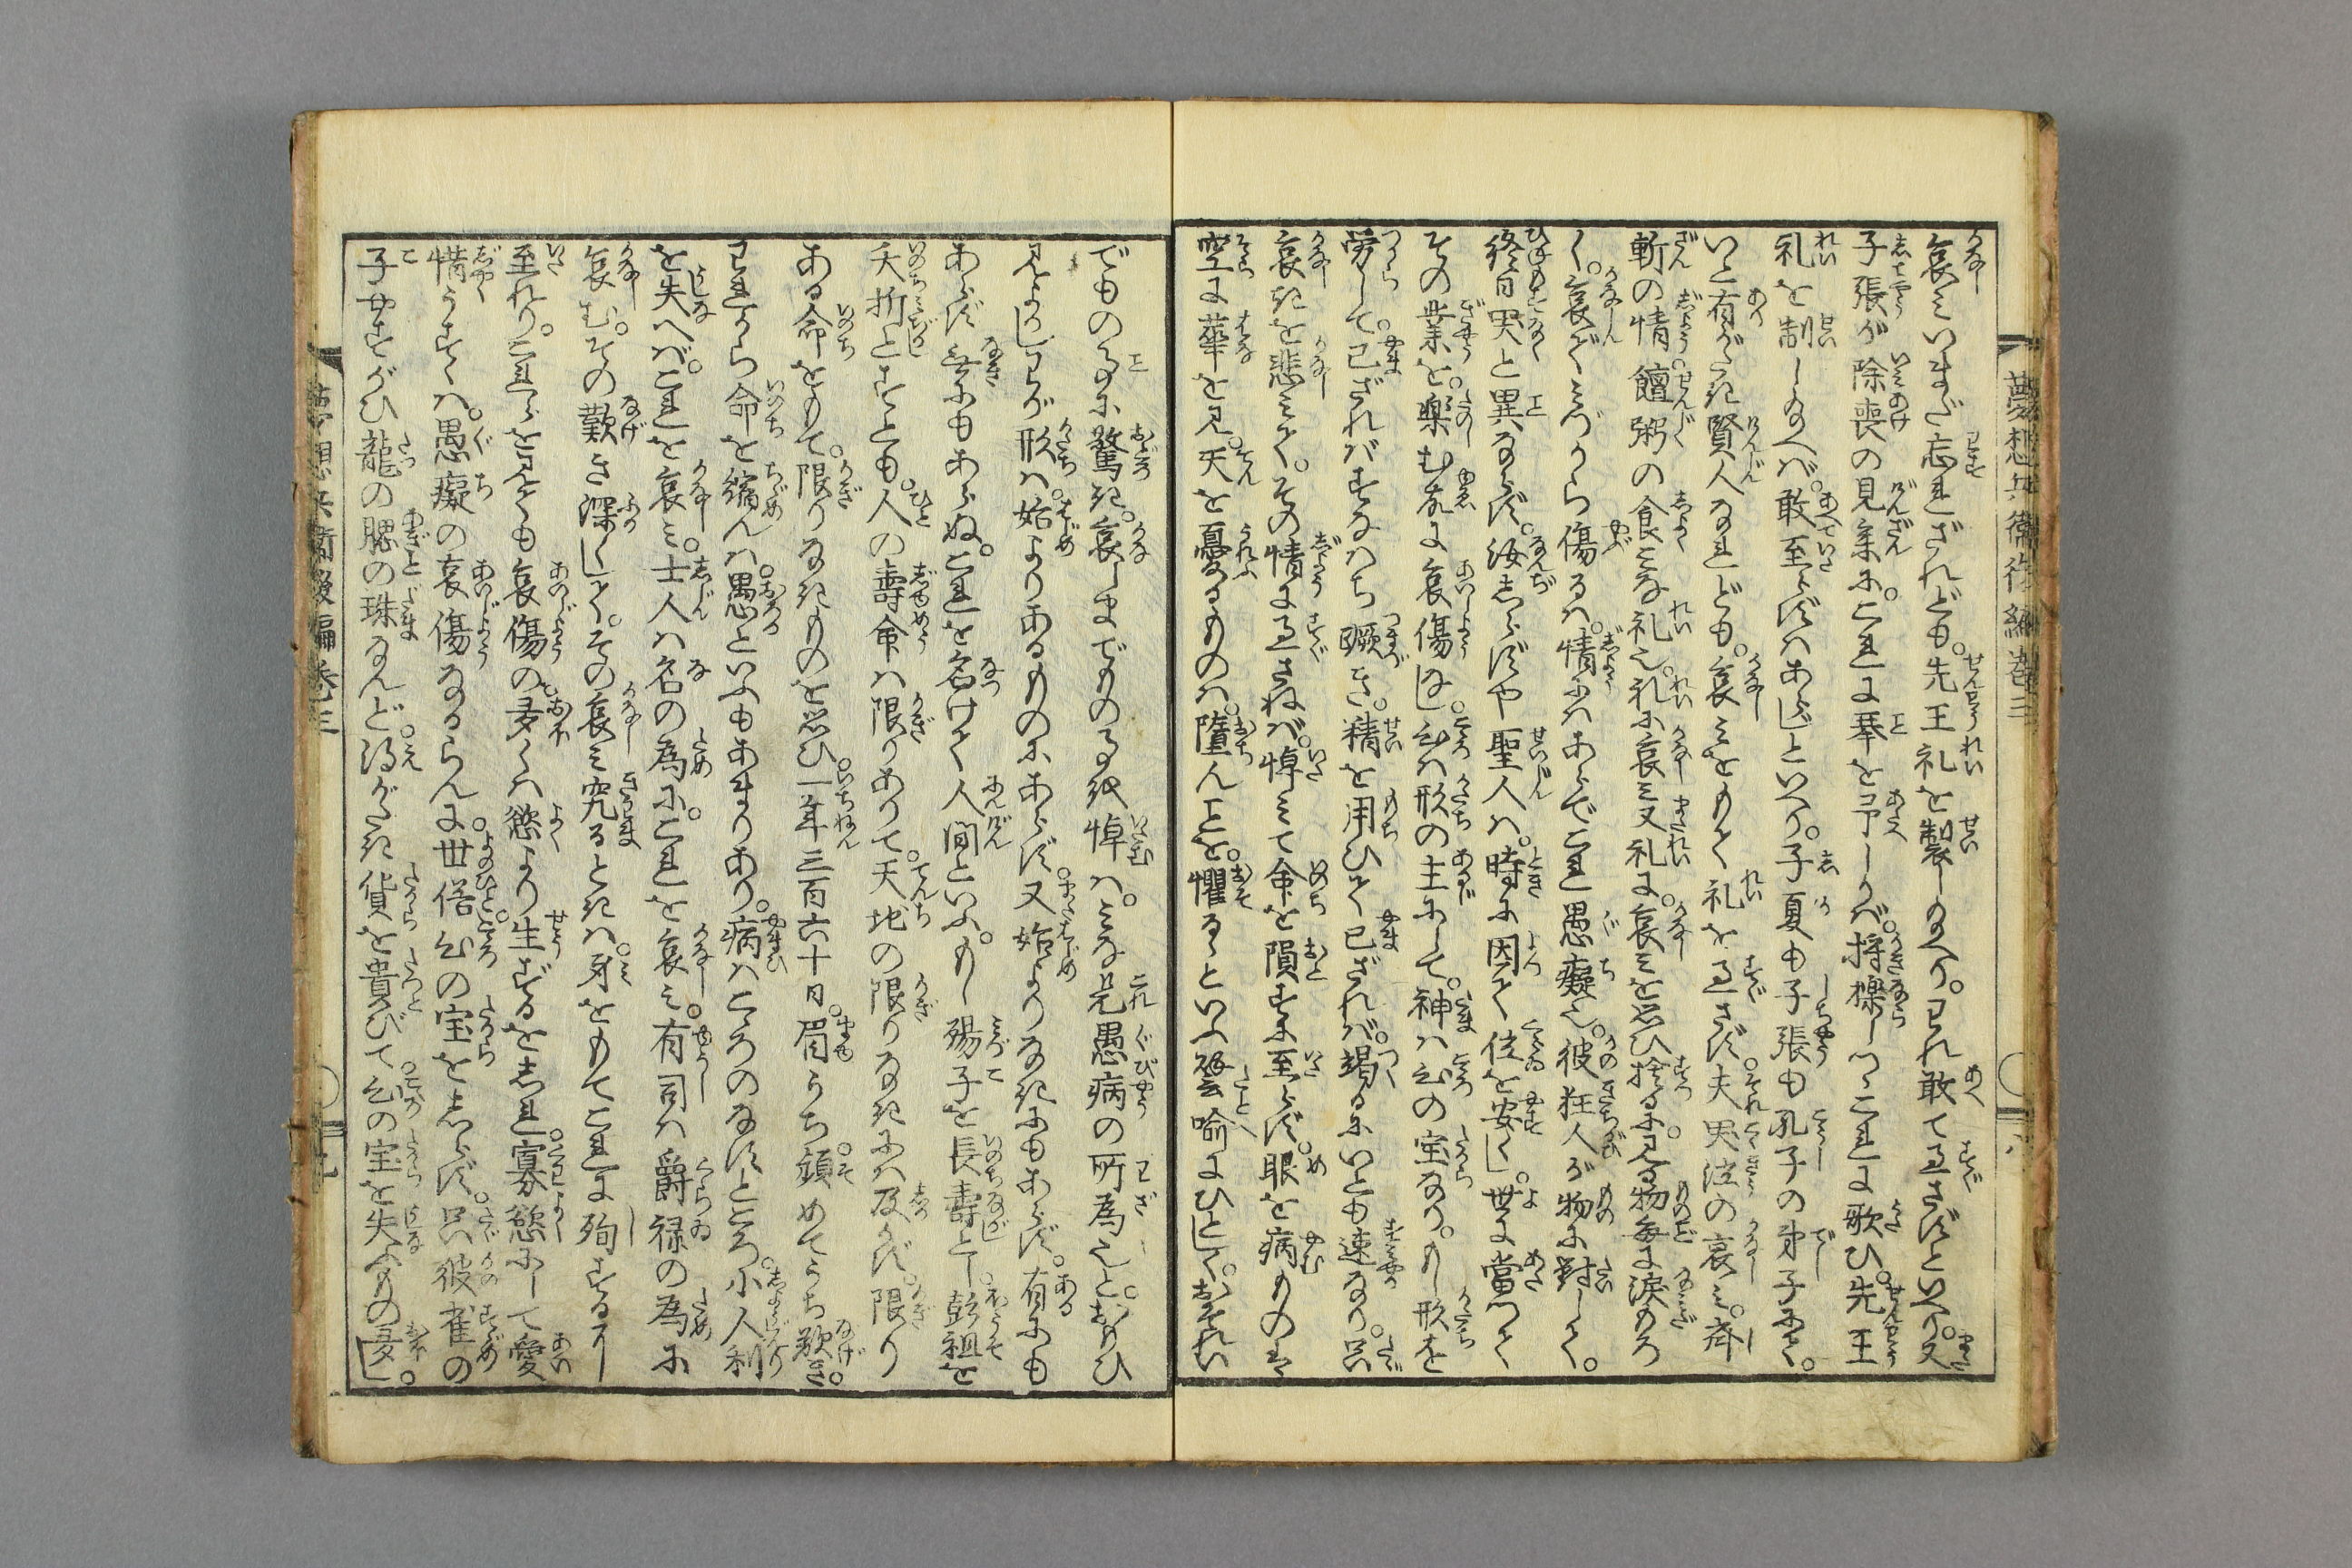 夢想兵衛後編巻三
哀みいまだ忘れざれども。先王礼を製し給へり。われ敢て過さずといへり。又
子張が除喪の見参に。これに琴を予しかば。搔櫟しつゝこれに歌ひ。先王
礼を制し給へば。敢至らずはあらじといへり。子夏も子張も孔子の弟子にて。
いと有がたき賢人なれども。哀みをもて礼を過さず。夫哭泣の哀み。斉
斬の情。饘粥の食みな礼也。礼に哀み又礼に。哀みを思ひ捨るに。見る物毎に涙もろ
く。哀でみづから傷るは。情にはあらでこれ愚癡也。彼狂人が物に対して。
終日哭と異ならず。汝しらずや聖人は。時に因て位を安くし。世に当つて
その業を。楽む故に哀傷なし。心は形の主にして。神は心の宝なり。もし形を
労して。已ざればすなはち蹶き。精を用ひて已ざれば。竭るにいとも速なり。只
哀きを悲みて。その情に過さねば。悼みて命を隕すに至らず。眼を病ものは
空に華を見。天を憂るものは。墮んことを。懼るゝといふ譬喩にひとしく。おそれい
でもの事に驚き。哀しまでもの事を悼むは。みな是愚病の所為也と。おもひ
見よかし。わが形は。始よりあるものにあらず。又始よりなきにもあらず。有にも
あらず無にもあらぬ。これを名けて人間といふ。もし殤子を長寿とし。彭祖を
夭折とすとも。人の寿命は限りありて。天地の限りなきには及かず。限り
ある命をもて。限りなきものを思ひ。一年三百六十日。眉うち顰めてうち歎き。
われから命を縮んは。愚といふもあまりあり。病はこゝろのなすところ。小人利
を失へば。これを哀み。士人は名の為に。これを哀み。有司は爵禄の為に
哀む。その歎き深くして。その哀み究るときは。身をもてこれに殉するに
至れり。これらを見ても哀傷の多くは慾より生ずるをしれ。寡慾にして愛
惜うすくは。愚癡の哀傷なるらんに。世俗心の宝をしらず。只彼雀の
子やすがひ龍の腮の珠なんど。得がたき貨を貴びて。心の宝を失ふもの多し。